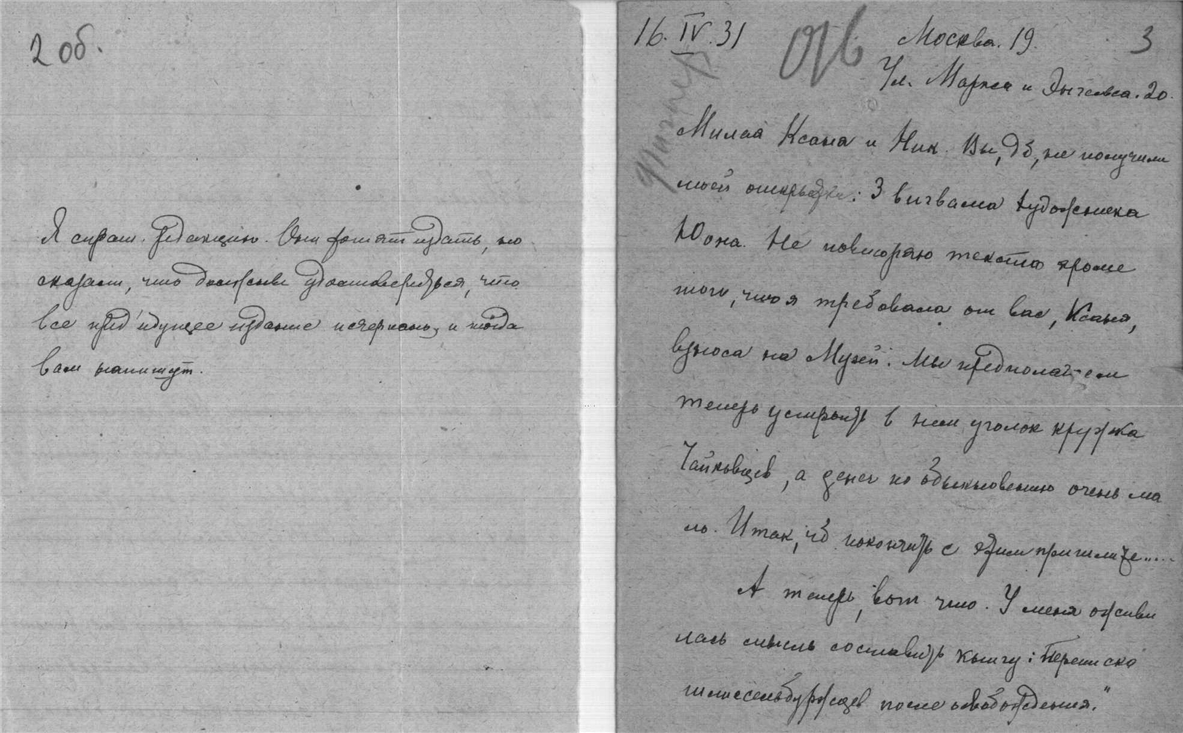 2 об.
Я спраш. редакцию. Они хотят издать, но
сказали, что должны удостовериться, что
все пред'идущее издание исчерпано, и тогда
вам напишут.
16. IV. 31
Отв
Москва. 19.
3
Ул. Маркса и Энгельса. 20.
Фигнер
Милая Ксана и Ник. Вы, дб, не получили
моей открытки: 3 вигвама художника
Юона. Не повторяю текста кроме
того, что я требовала от вас, Ксана,
взноса на Музей. Мы предполагаем
теперь устроить в нем уголок кружка
Чайковцев, а денег по обыкновению очень ма
ло. Итак, чб покончить с этим пришлите.....
А теперь, вот что. У меня оживи
лась мысль составить книгу: "Переписка
шлиссельбуржцев после освобождения."